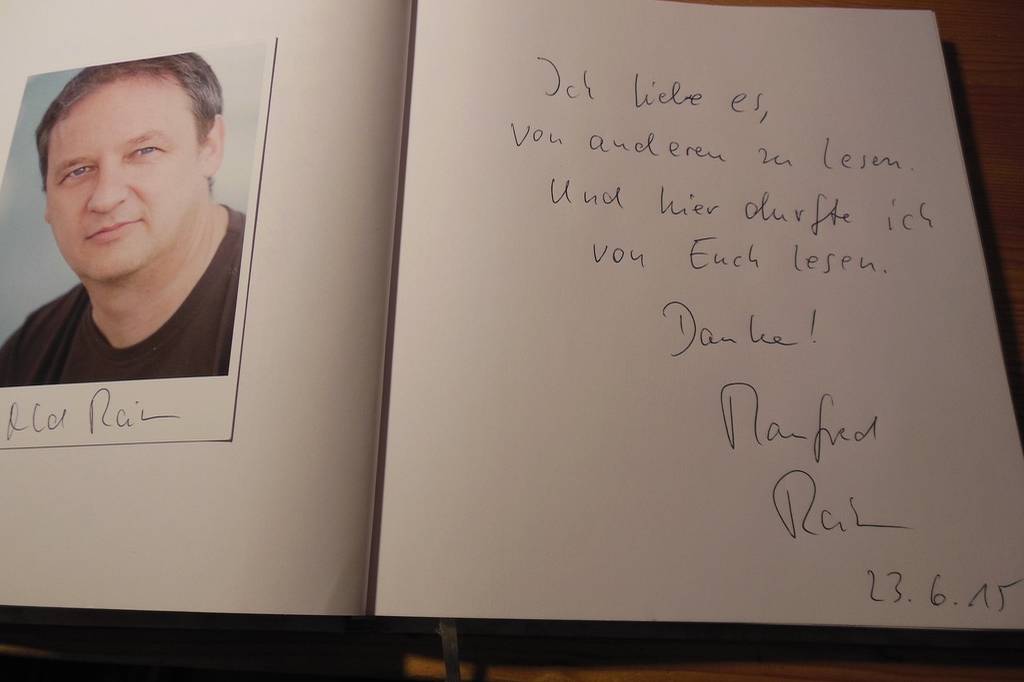 Ich liebe es,
von anderen zu lesen.
Und hier durfte ich
von Euch lesen.
Danke!
Manfred
23.6.15